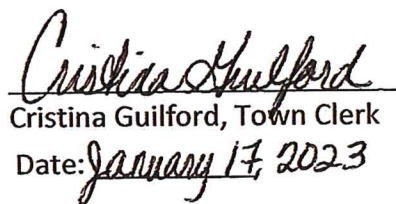 Cristina Guilford
Cristina Guilford, Town Clerk
Date: January 17, 2023